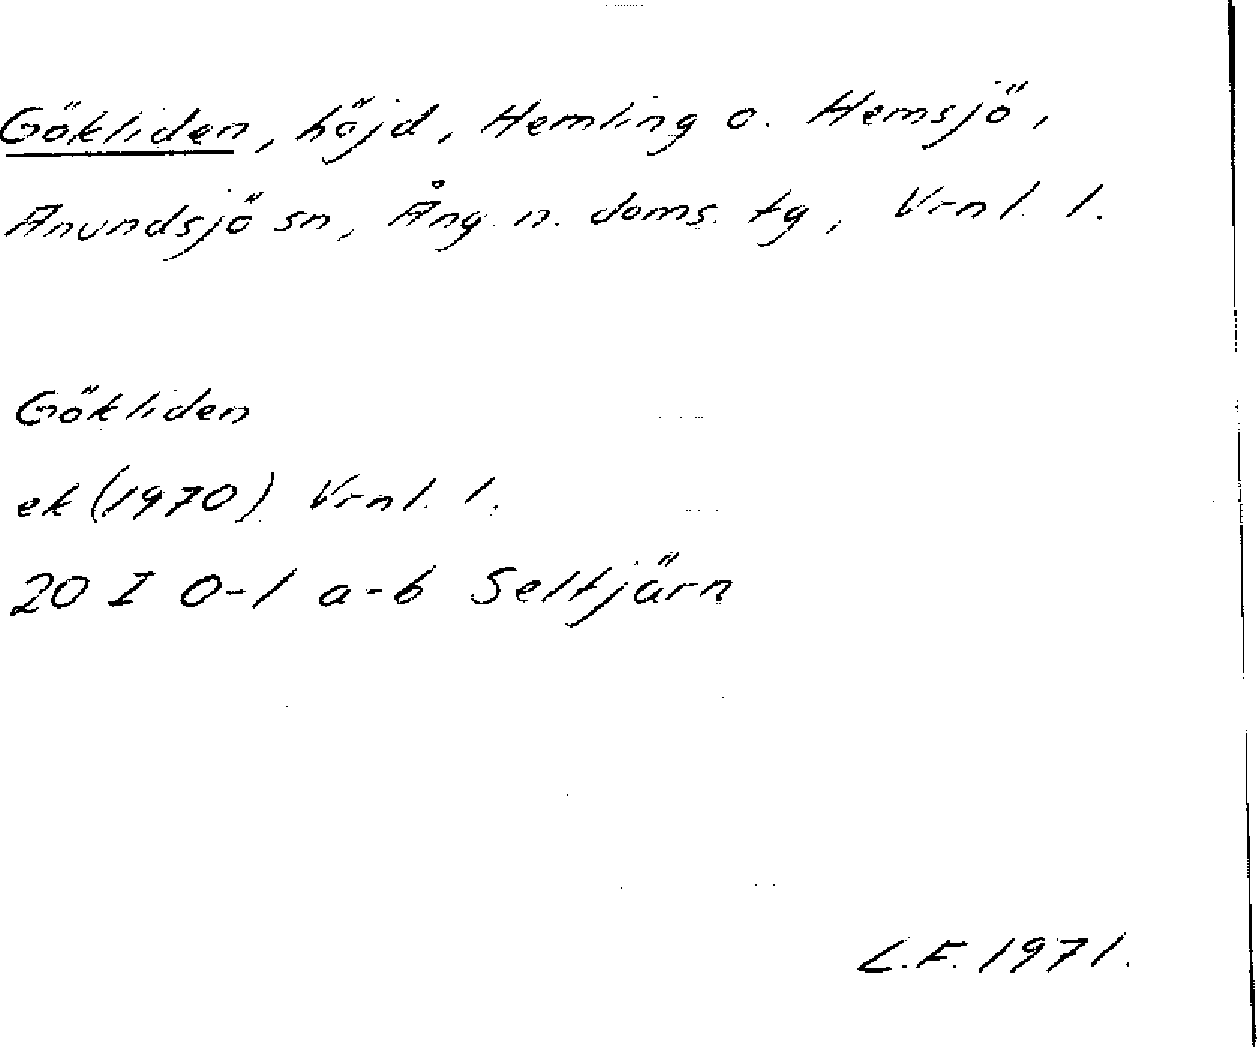 Gökliden, höjd, Hemling o. Hemsjö,
Anundsjö sn, Ång. n. doms. tg, Vrnl. l.
Gökliden
ek (1970). Vrnl. l.
20 I 0-1 a-b Seltjärn
L.F. 1971.